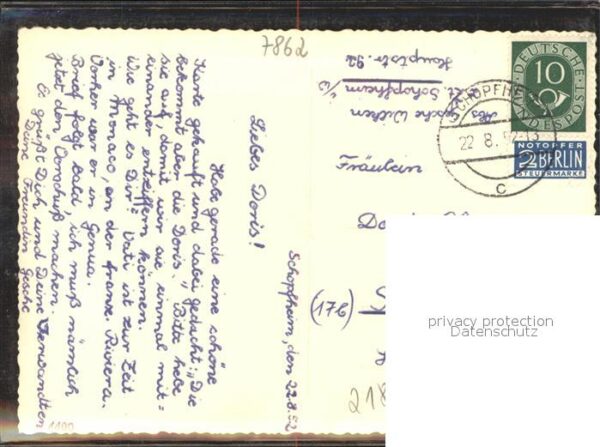 7862
Schopfheim, den 22.8.52
Liebes Doris!
Habe gerade eine schöne
Karte gekauft und dabei gedacht: „Die
bekommt aber die Doris." Bitte hebe
sie auf, damit wir sie einmal mit-
einander entziffern können.
Wie geht es Dir? Vati ist zur Zeit
in Monaco, an der franz. Riviera.
Vorher war er in Genua.
Brief folgt bald, ich muß nämlich
jetzt den Vorschuß machen.
Es grüßt Dich, und Deine Verwandten
Deine Freundin Gesche
1190
Abs.
Gesche
z. Zt. Schopfheim i/B
Hauptstr. 92
DEUTSCHE
BUNDESPOST
10
SCHOPFHEIM
22.8.52-13
c
NOTOPFER
2 BERLIN
STEUERMARKE
Fräulein
Do
(17b)
218
privacy protection
Datenschutz